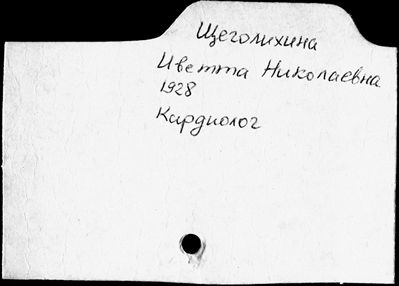 Щеголихина
Иветта Николаевна
1928
Кардиолог